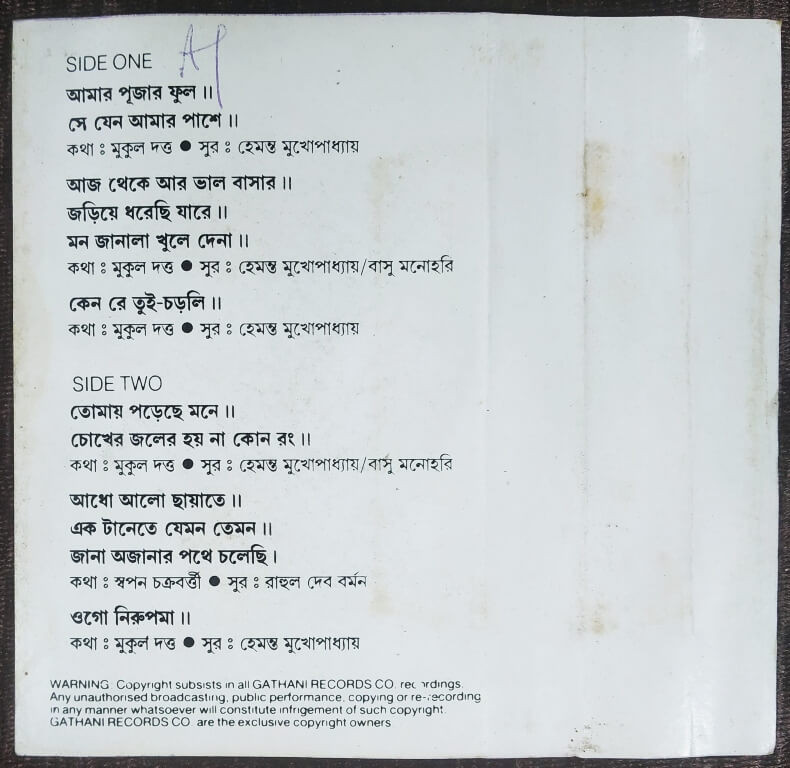 SIDE ONE
আমার পূজার ফুল ॥
সে যেন আমার পাশে ॥
কথা : মুকুল দত্ত ● সুর : হেমন্ত মুখোপাধ্যায়
আজ থেকে আর ভাল বাসার ॥
জড়িয়ে ধরেছি যারে ॥
মন জানালা খুলে দেনা ॥
কথা : মুকুল দত্ত ● সুর : হেমন্ত মুখোপাধ্যায়/বাসু মনোহরি
কেন রে তুই-চড়লি ॥
কথা : মুকুল দত্ত ● সুর : হেমন্ত মুখোপাধ্যায়
SIDE TWO
তোমায় পড়েছে মনে ॥
চোখের জলের হয় না কোন রং ॥
কথা : মুকুল দত্ত ● সুর : হেমন্ত মুখোপাধ্যায়/বাসু মনোহরি
আধো আলো ছায়াতে ॥
এক টানেতে যেমন তেমন ॥
জানা অজানার পথে চলেছি ।
কথা : স্বপন চক্রবর্ত্তী ● সুর : রাহুল দেব বর্মন
ওগো নিরুপমা ॥
কথা : মুকুল দত্ত ● সুর : হেমন্ত মুখোপাধ্যায়
WARNING. Copyright subsists in all GATHANI RECORDS CO. recordings.
Any unauthorised broadcasting, public performance, copying or re-recording
in any manner whatsoever will constitute infrigement of such copyright.
GATHANI RECORDS CO. are the exclusive copyright owners